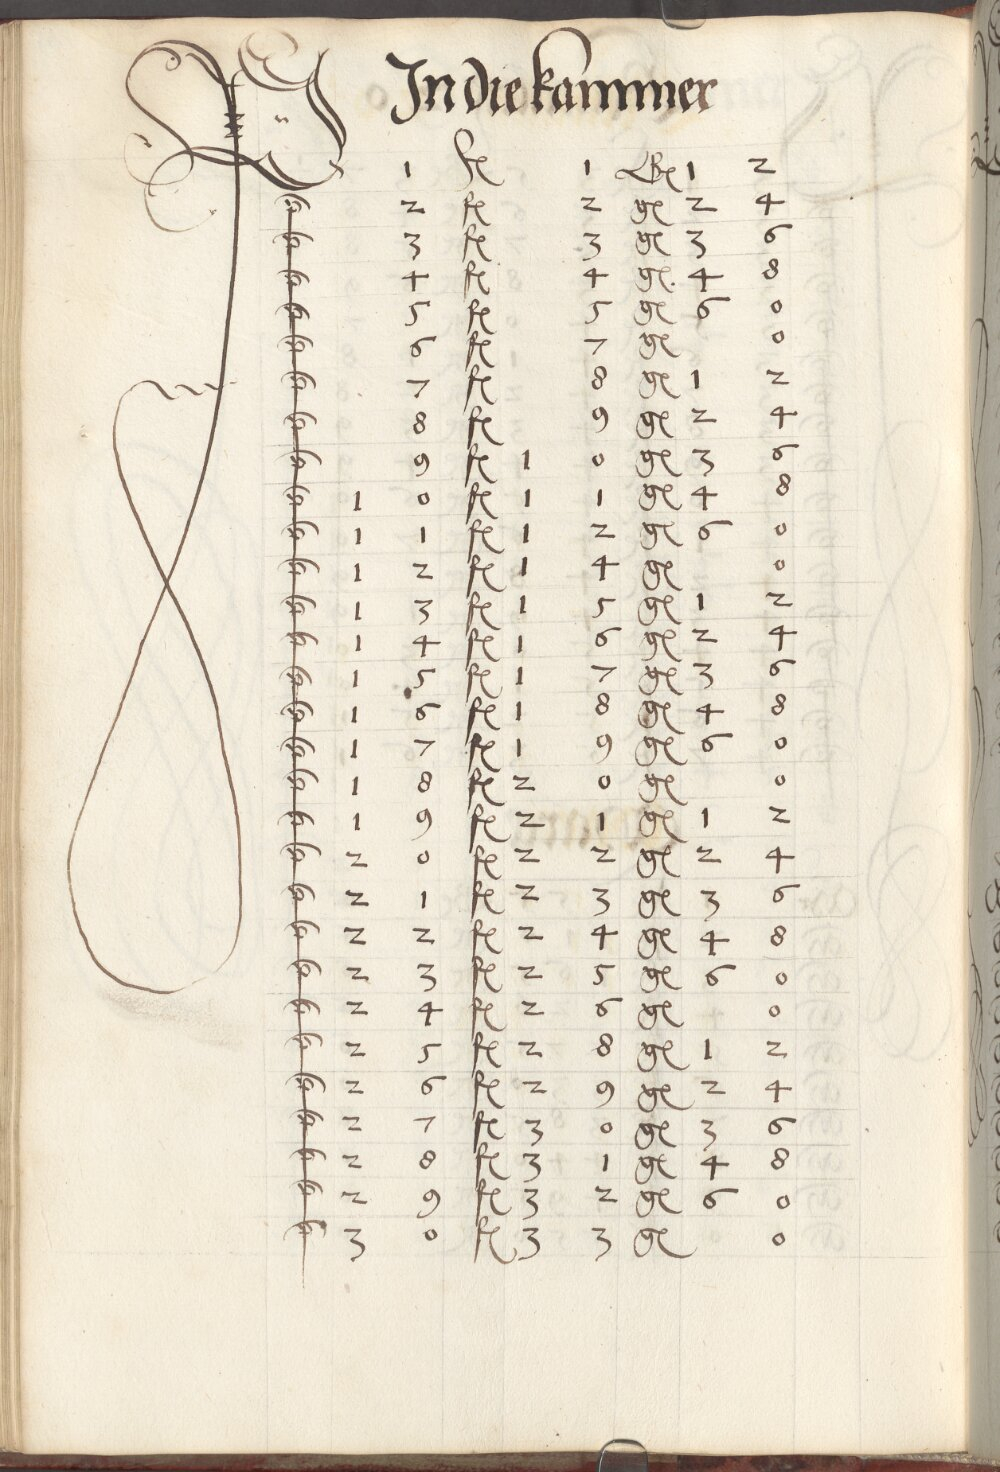 In die kammer
1 fl 1 lb 1 2
2 fl 2 gl 2 4
3 fl 3 gl 3 6
4 fl 4 gl 4 8
5 fl 5 gl 6 0
6 fl 7 gl 0
7 fl 8 gl 1 2
8 fl 9 gl 2 4
9 fl 1 0 gl 3 6
1 0 fl 1 1 gl 4 8
1 1 fl 1 2 gl 6 0
1 2 fl 1 4 gl 0
1 3 fl 1 5 gl 1 2
1 4 fl 1 6 gl 2 4
1 5 fl 1 7 gl 3 6
1 6 fl 1 8 gl 4 8
1 7 fl 1 9 gl 6 0
1 8 fl 2 0 gl 0
1 9 fl 2 1 gl 1 2
2 0 fl 2 2 gl 2 4
2 1 fl 2 3 gl 3 6
2 2 fl 2 4 gl 4 8
2 3 fl 2 5 gl 6 0
2 4 fl 2 6 gl 0
2 5 fl 2 8 gl 1 2
2 6 fl 2 9 gl 2 4
2 7 fl 3 0 gl 3 6
2 8 fl 3 1 gl 4 8
2 9 fl 3 2 gl 6 0
3 0 fl 3 3 gl 0